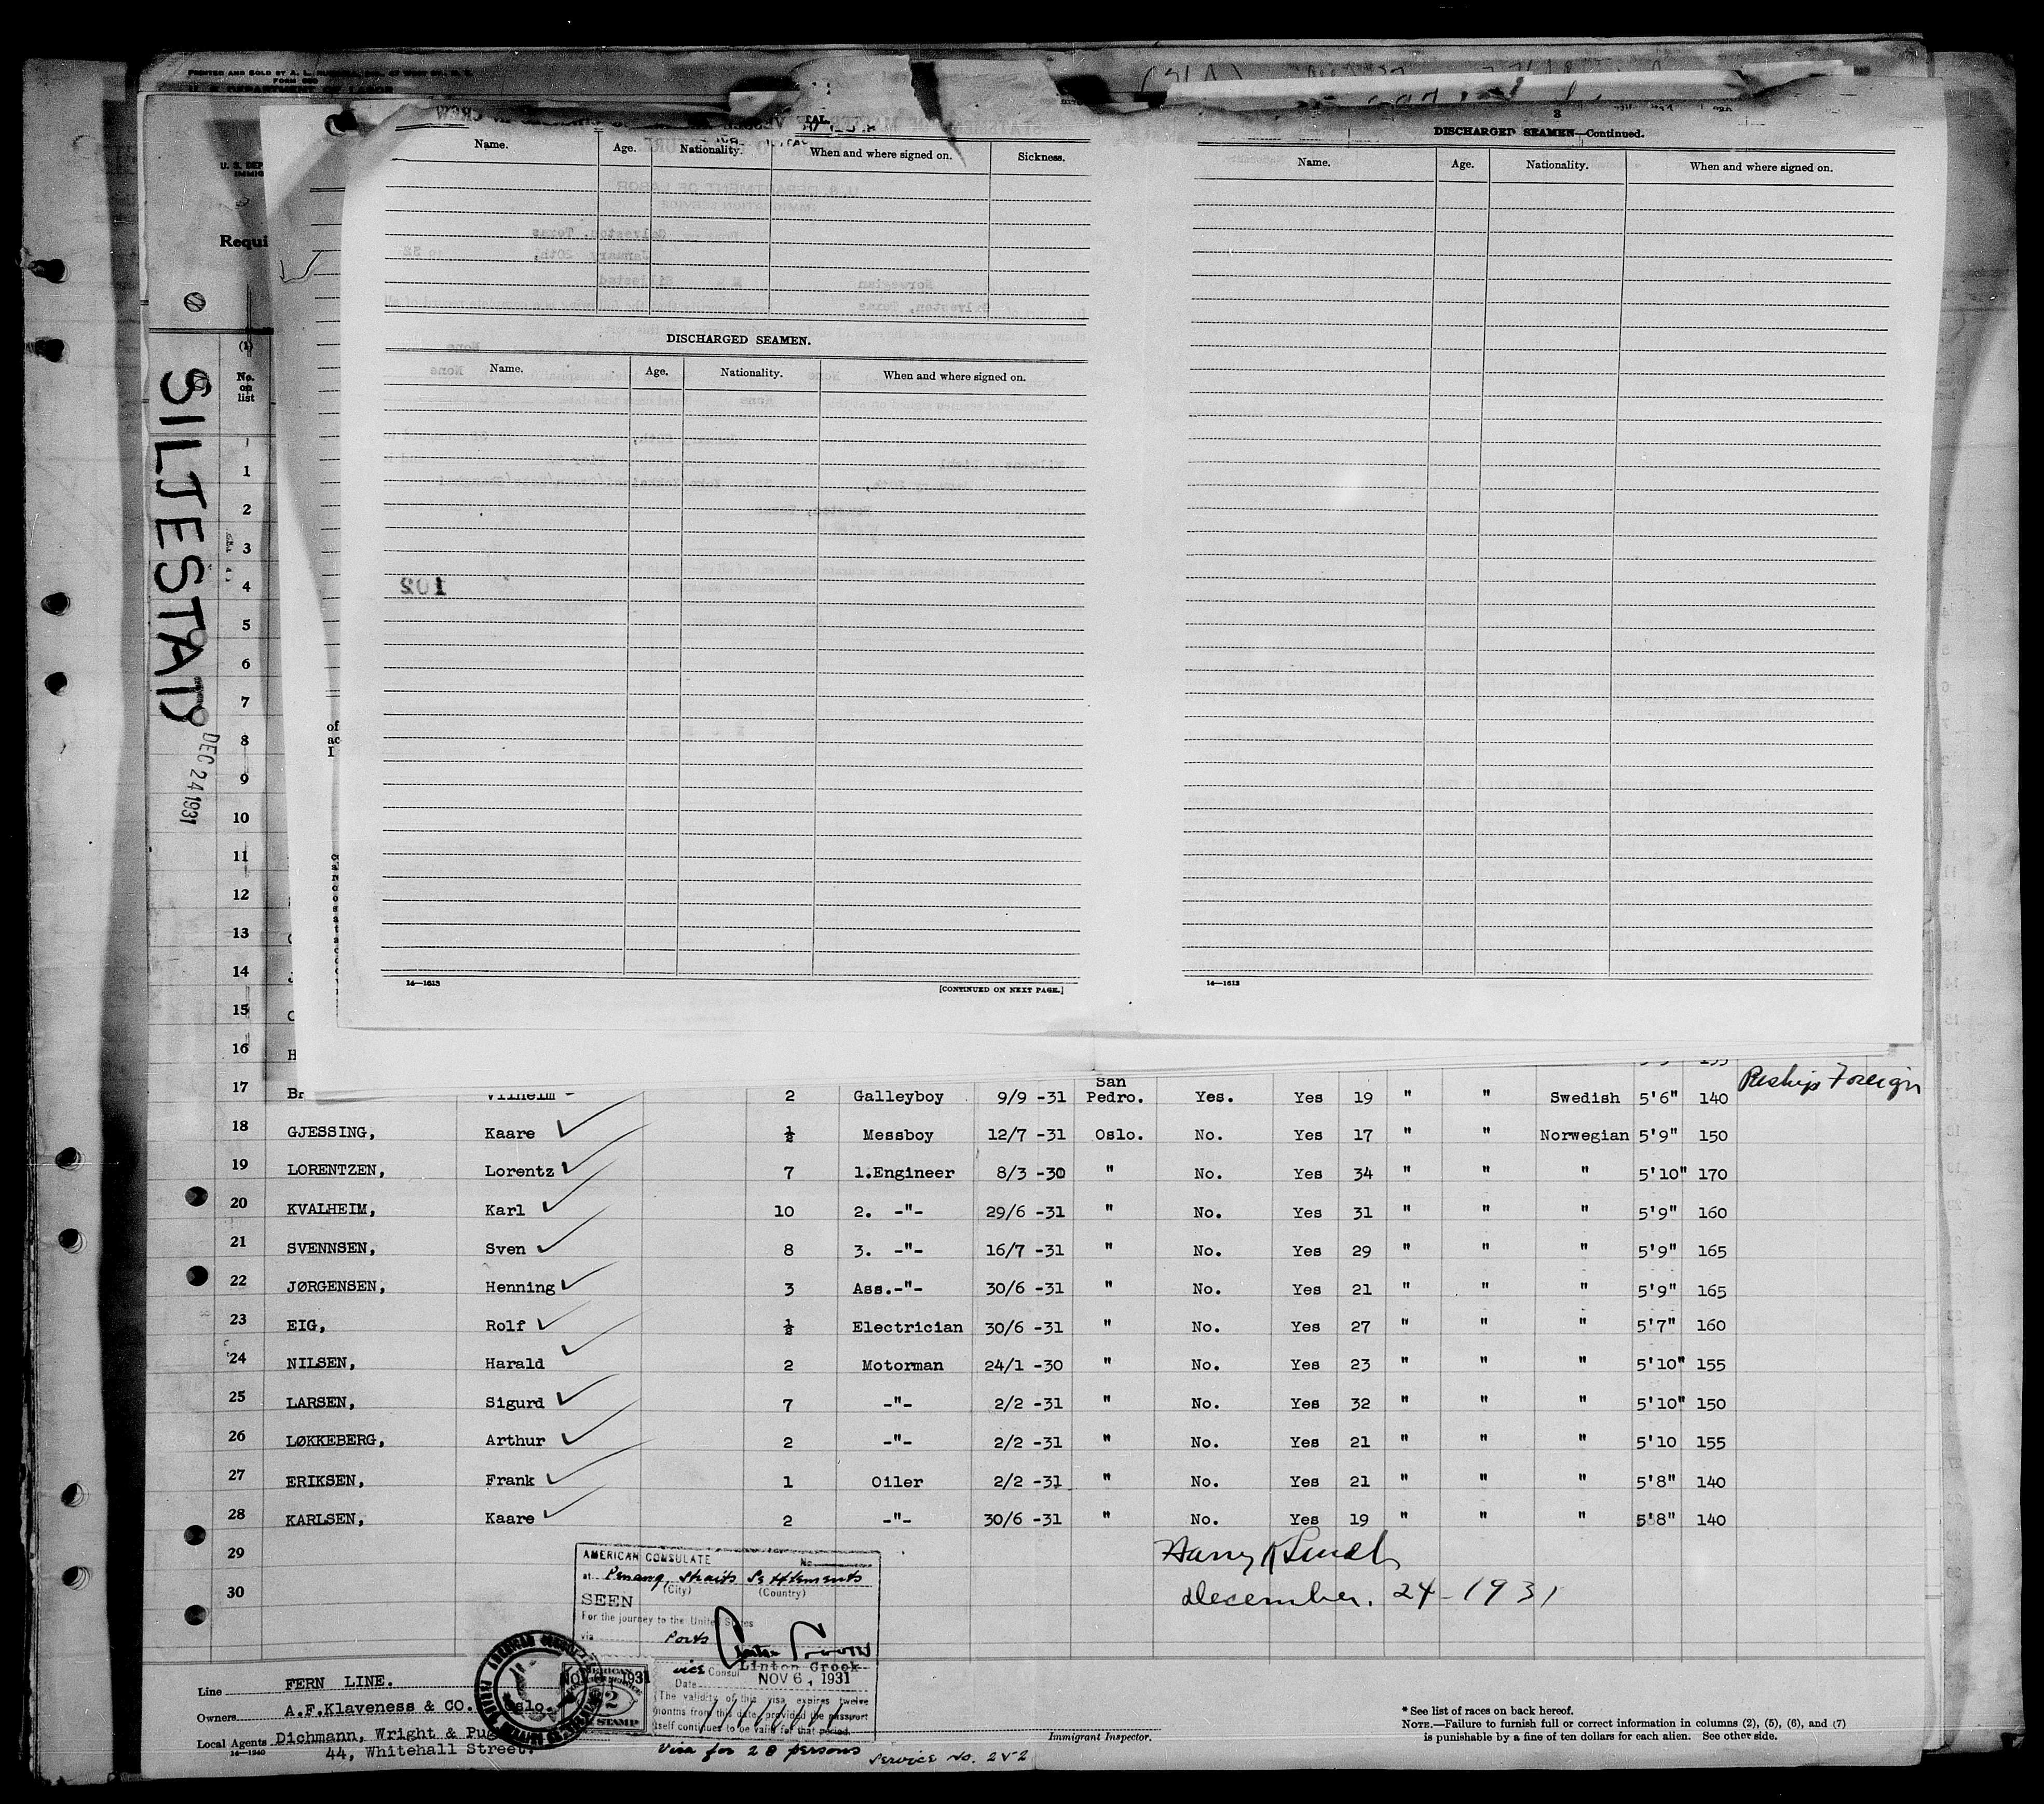 PRINTED AND SOLD BY A. L.
FORM 680
U. S. DEPARTMENT OF LABOR
U. S. DEP
IMMIG
Requi
SILJESTAD
DEC 24 1931
Name. Age. Nationality. When and where signed on. Sickness.
DISCHARGED SEAMEN.
Name. Age. Nationality. When and where signed on.
102
14—1613 [CONTINUED ON NEXT PAGE.]
3
DISCHARGED SEAMEN—Continued.
Name. Age. Nationality. When and where signed on.
14—1613
(1)
No. on list
1
2
3
4
5
6
7
8
9
10
11
12
13
14
15
16 H
17 Br Vilhelm 2 Galleyboy 9/9 -31 San Pedro. Yes. Yes 19 " " Swedish 5'6" 140 Reship Foreign
18 GJESSING, Kaare ½ Messboy 12/7 -31 Oslo. No. Yes 17 " " Norwegian 5'9" 150
19 LORENTZEN, Lorentz 7 1.Engineer 8/3 -30 " No. Yes 34 " " " 5'10" 170
20 KVALHEIM, Karl 10 2. -"- 29/6 -31 " No. Yes 31 " " " 5'9" 160
21 SVENNSEN, Sven 8 3. -"- 16/7 -31 " No. Yes 29 " " " 5'9" 165
22 JØRGENSEN, Henning 3 Ass.-"- 30/6 -31 " No. Yes 21 " " " 5'9" 165
23 EIG, Rolf ½ Electrician 30/6 -31 " No. Yes 27 " " " 5'7" 160
24 NILSEN, Harald 2 Motorman 24/1 -30 " No. Yes 23 " " " 5'10" 155
25 LARSEN, Sigurd 7 -"- 2/2 -31 " No. Yes 32 " " " 5'10" 150
26 LØKKEBERG, Arthur 2 -"- 2/2 -31 " No. Yes 21 " " " 5'10 155
27 ERIKSEN, Frank 1 Oiler 2/2 -31 " No. Yes 21 " " " 5'8" 140
28 KARLSEN, Kaare 2 -"- 30/6 -31 " No. Yes 19 " " " 5'8" 140
29
30
Harry
december. 24 - 1931
AMERICAN CONSULATE No.
at Penang, Straits Settlements
(City) (Country)
SEEN
For the journey to the United States
via Ports
Linton Crook
vice Consul
Date NOV 6, 1931
The validity of this visa expires twelve
months from this date, provided the passport
itself continues to be valid for that period.
NOV 1931
2
STAMP
Visa for 28 persons Service No. 252
Line FERN LINE.
Owners A.F.Klaveness & CO. Oslo.
Local Agents Dichmann, Wright & Pu
14—1240 44, Whitehall Street.
Immigrant Inspector.
* See list of races on back hereof.
NOTE.—Failure to furnish full or correct information in columns (2), (5), (6), and (7)
is punishable by a fine of ten dollars for each alien. See other side.